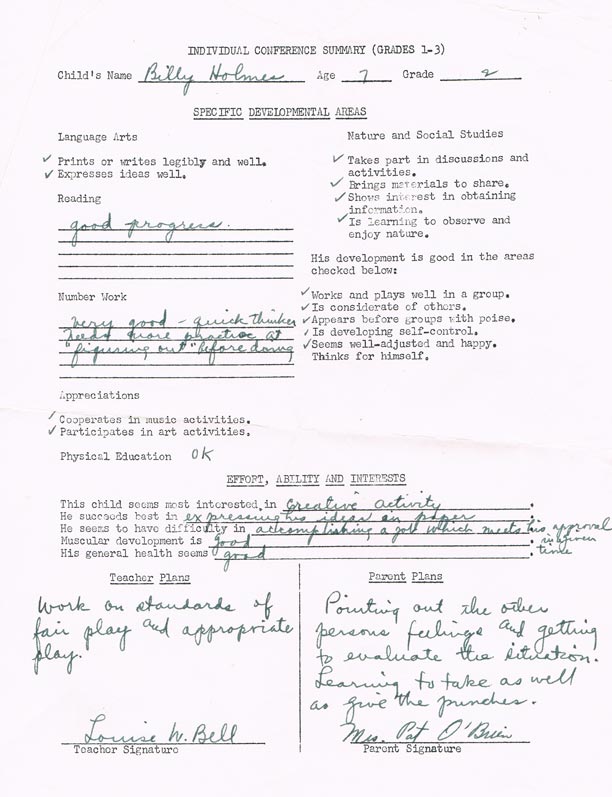 INDIVIDUAL CONFERENCE SUMMARY (GRADES 1-3)
Child's Name Billy Holmes Age 7 Grade 2
SPECIFIC DEVELOPMENTAL AREAS
Language Arts
✓ Prints or writes legibly and well.
✓ Expresses ideas well.
Reading
good progress.
Number Work
very good - quick thinker
needs more practice at
"figuring out" before doing
Appreciations
✓ Cooperates in music activities.
✓ Participates in art activities.
Physical Education OK
Nature and Social Studies
✓ Takes part in discussions and
activities.
✓ Brings materials to share.
✓ Shows interest in obtaining
information.
✓ Is learning to observe and
enjoy nature.
His development is good in the areas
checked below:
✓ Works and plays well in a group.
✓ Is considerate of others.
✓ Appears before groups with poise.
✓ Is developing self-control.
✓ Seems well-adjusted and happy.
Thinks for himself.
EFFORT, ABILITY AND INTERESTS
This child seems most interested in Creative activity.
He succeeds best in expressing his ideas on paper.
He seems to have difficulty in accomplishing a job which meets his approval
in given
time
Muscular development is Good.
His general health seems good.
Teacher Plans
Work on standards of
fair play and appropriate
play.
Louise W. Bell
Teacher Signature
Parent Plans
Pointing out the other
persons feelings and getting
to evaluate the situation.
Learning to take as well
as give the punches.
Mrs. Pat O'Brien
Parent Signature